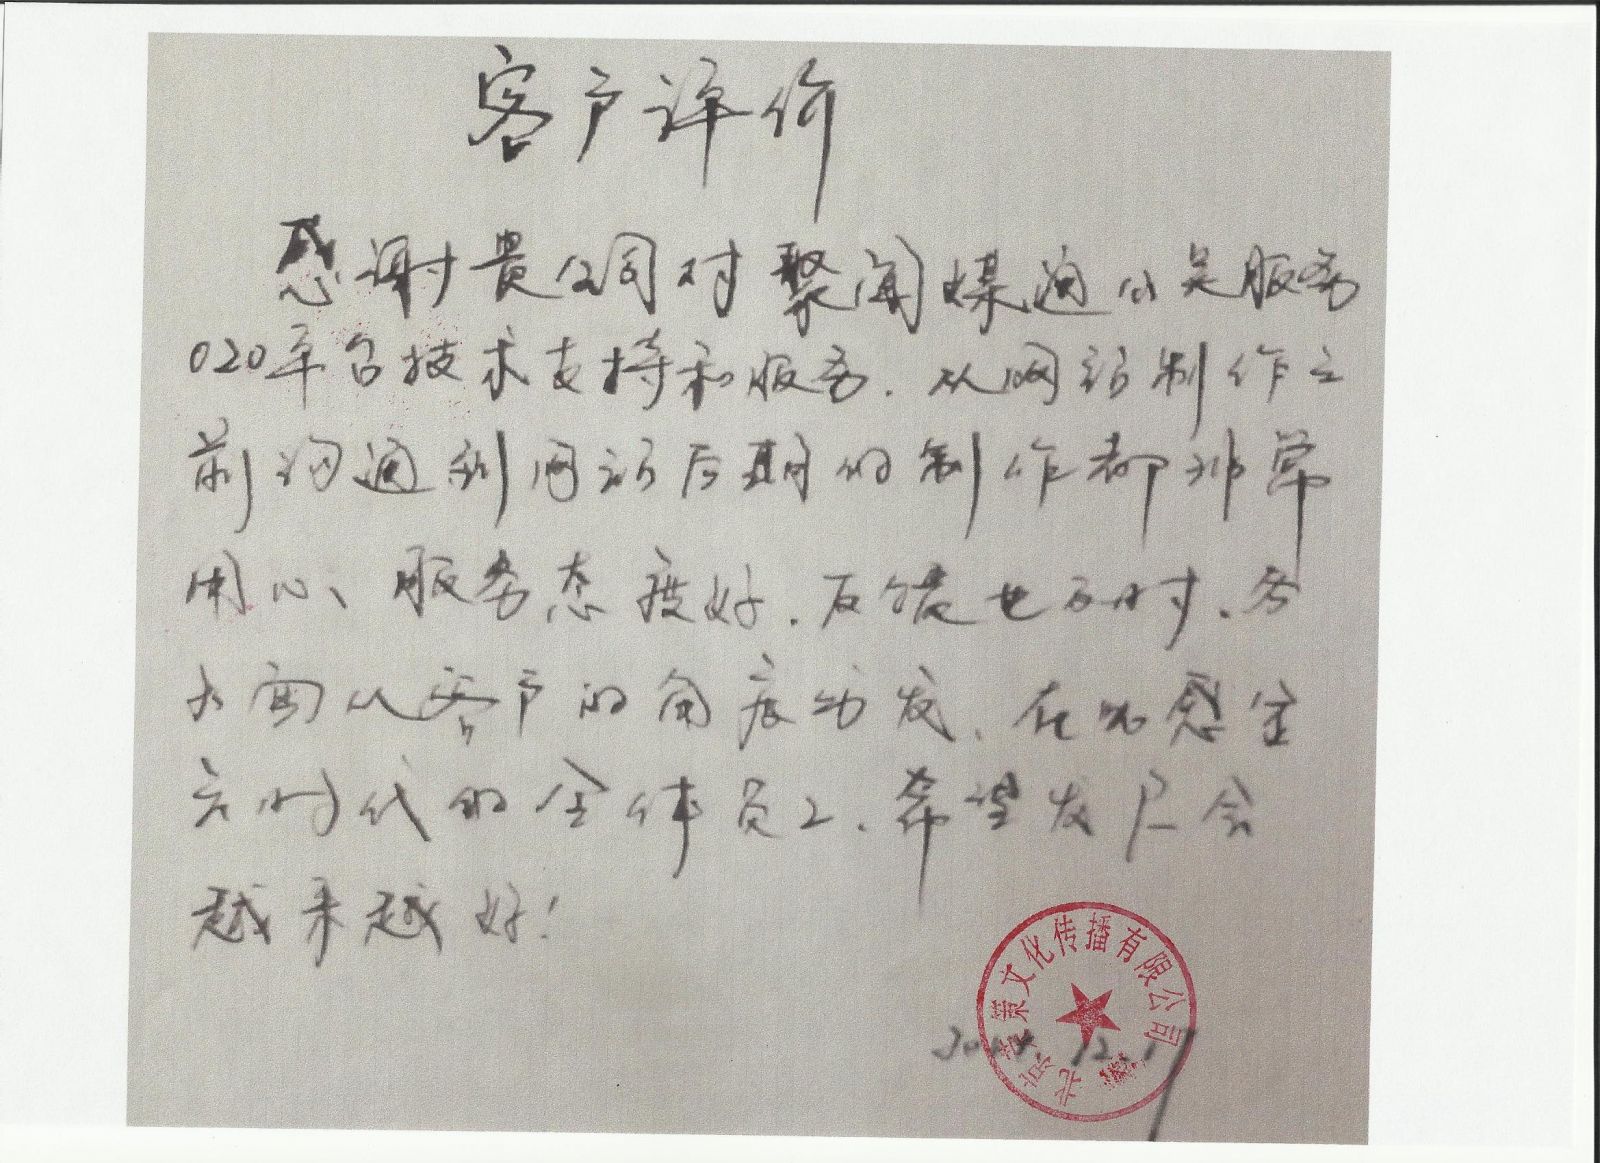 客户评价
感谢贵公司对聚闻媒通公关服务
O2O平台技术支持和服务.从网站制作之
前沟通到网站后期的制作都非常
用心、服务态度好.反馈也及时.
从客户的角度出发、在此感
时代的全体员工、希望发展会
越来越好!
北京 荣文化传播有限公司